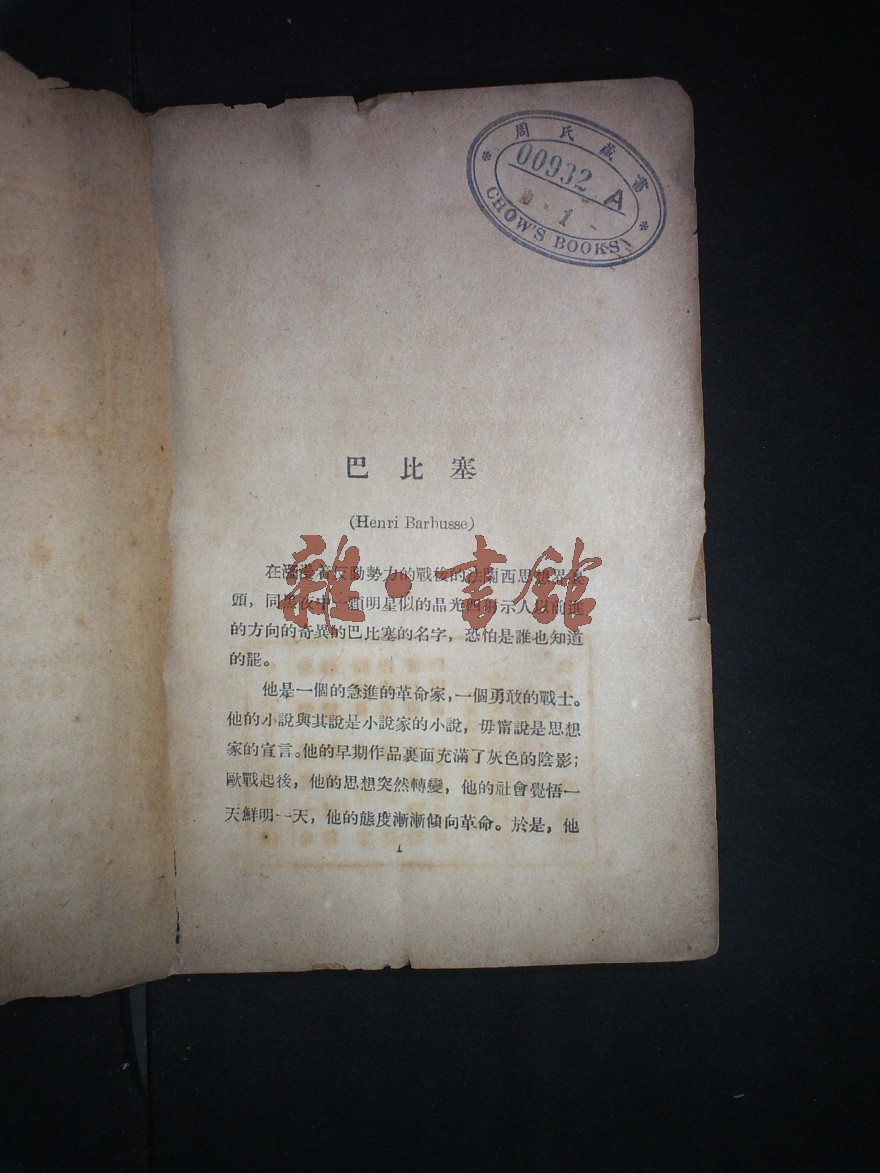 周氏藏書
00932 A
1
CHOW'S BOOKS
巴比塞
(Henri Barbusse)
在瀰漫着反動勢力的戰後的法蘭西思想界裏
頭，同黑夜中一顆明星似的晶光四射示人以前進
的方向的奇異的巴比塞的名字，恐怕是誰也知道
的罷。
他是一個的急進的革命家，一個勇敢的戰士。
他的小說與其說是小說家的小說，毋甯說是思想
家的宣言。他的早期作品裏面充滿了灰色的陰影；
歐戰起後，他的思想突然轉變，他的社會覺悟一
天鮮明一天，他的態度漸漸傾向革命。於是，他
1
雜·書館